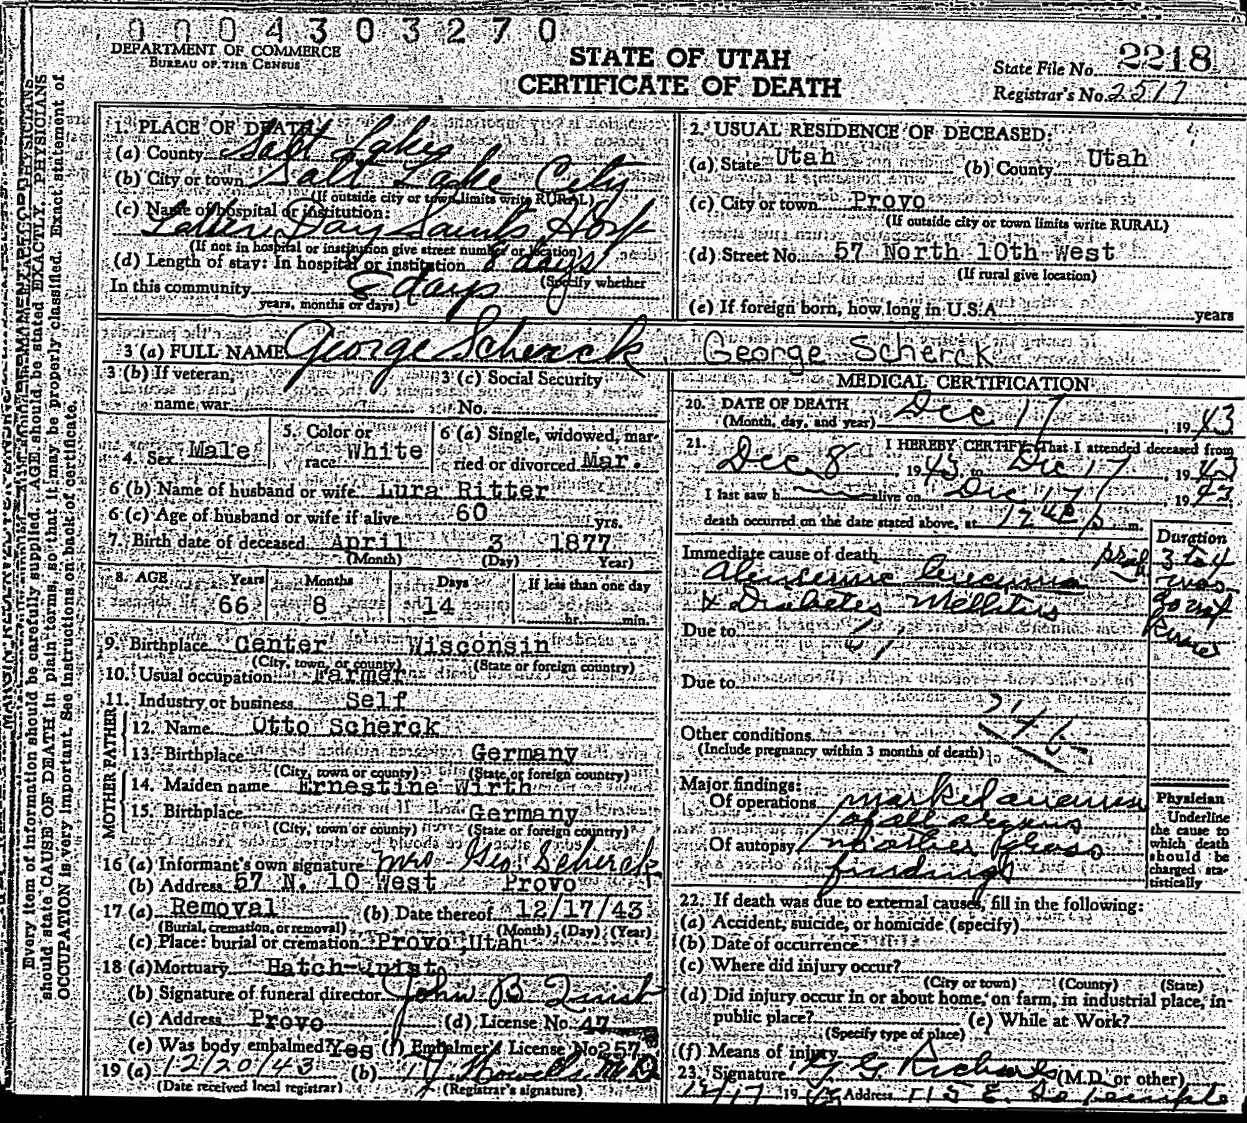 0 0 0 4 3 0 3 2 7 0
DEPARTMENT OF COMMERCE
BUREAU OF THE CENSUS
STATE OF UTAH
CERTIFICATE OF DEATH
State File No. 2218
Registrar's No. 2517
Every item of information should be carefully supplied. AGE should be stated EXACTLY. PHYSICIANS
should state CAUSE OF DEATH in plain terms, so that it may be properly classified. Exact statement of
OCCUPATION is very important. See instructions on back of certificate.
1. PLACE OF DEATH:
(a) County Salt Lake
(b) City or town Salt Lake City
(If outside city or town limits write RURAL)
(c) Name of hospital or institution:
Latter Day Saints Hosp
(If not in hospital or institution give street number or location)
(d) Length of stay: In hospital or institution 8 days
(Specify whether
In this community 8 days
years, months or days)
2. USUAL RESIDENCE OF DECEASED:
(a) State Utah (b) County Utah
(c) City or town Provo
(If outside city or town limits write RURAL)
(d) Street No. 57 North 10th West
(If rural give location)
(e) If foreign born, how long in U.S.A. years
3 (a) FULL NAME George Scherck George Scherck
3 (b) If veteran, 3 (c) Social Security
name war No.
4. Sex Male 5. Color or race White 6 (a) Single, widowed, married or divorced Mar.
6 (b) Name of husband or wife Lura Ritter
6 (c) Age of husband or wife if alive 60 yrs.
7. Birth date of deceased April 3 1877
(Month) (Day) Year)
8. AGE Years Months Days If less than one day
66 8 14 hr. min.
9. Birthplace Center Wisconsin
(City, town, or county) (State or foreign country)
10. Usual occupation Farmer
11. Industry or business Self
FATHER
12. Name Otto Scherck
13. Birthplace Germany
(City, town or county) (State or foreign country)
MOTHER
14. Maiden name Ernestine Wirth
15. Birthplace Germany
(City, town or county) (State or foreign country)
16 (a) Informant's own signature Mrs Geo Scherck
(b) Address 57 N. 10 West Provo
17 (a) Removal (b) Date thereof 12/17/43
(Burial, cremation, or removal) (Month) (Day) (Year)
(c) Place: burial or cremation Provo, Utah
18 (a) Mortuary Hatch-Quist
(b) Signature of funeral director John B Quist
(c) Address Provo (d) License No. 47
(e) Was body embalmed? Yes (f) Embalmer's License No 257
19 (a) 12/20/43 (b)
(Date received local registrar) (Registrar's signature)
MEDICAL CERTIFICATION
20. DATE OF DEATH
(Month, day, and year) Dec 17, 1943
21. I HEREBY CERTIFY, That I attended deceased from
Dec 8 1943 to Dec 17, 1943
I last saw h alive on Dec 17, 1943
death occurred on the date stated above, at 12 m.
Duration
Immediate cause of death
3 to 4
mos
& Diabetes Mellitus
Due to 61
Due to
Other conditions
(Include pregnancy within 3 months of death)
Major findings:
Of operations marked anemia
of all organs
Of autopsy no other gross
findings
Physician
Underline
the cause to
which death
should be
charged statistically
22. If death was due to external causes, fill in the following:
(a) Accident, suicide, or homicide (specify)
(b) Date of occurrence
(c) Where did injury occur?
(City or town) (County) (State)
(d) Did injury occur in or about home, on farm, in industrial place, in
public place? (e) While at Work?
(Specify type of place)
(f) Means of injury
23. Signature G G Richards (M.D. or other)
12/17 1943 Address 115 E. So Temple